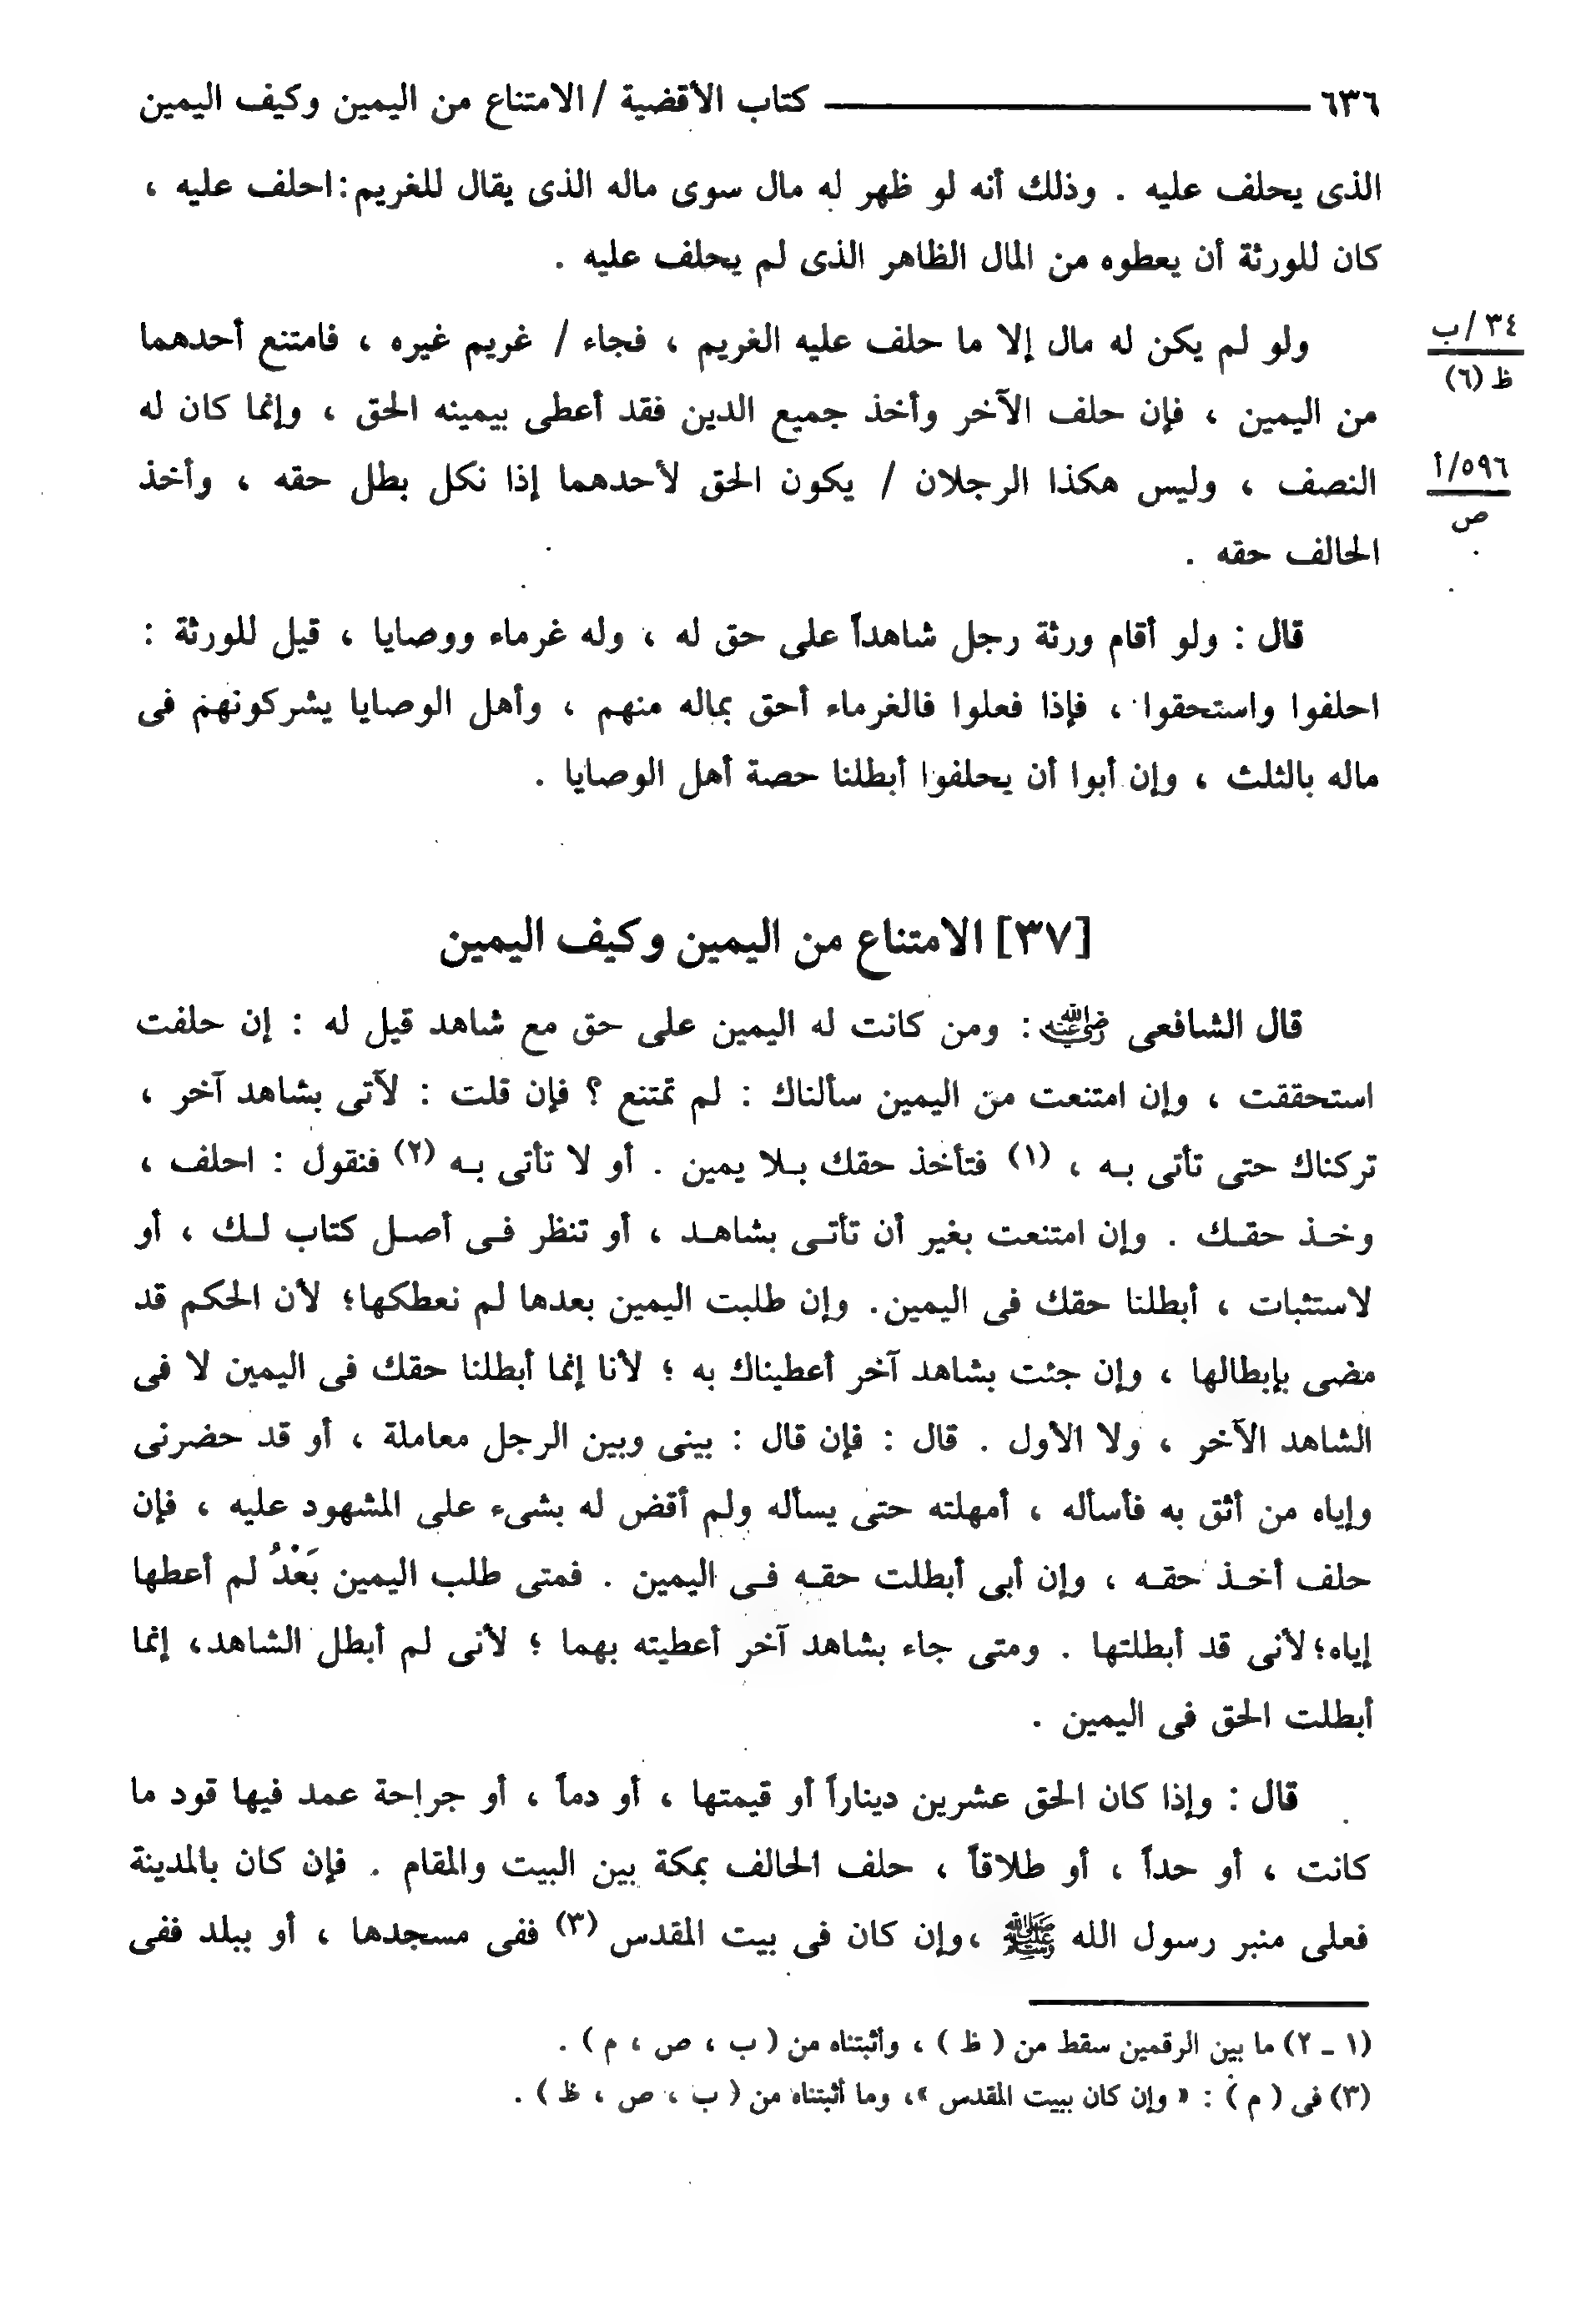 ٦٣٦ كتاب الأقضية / الامتناع من اليمين وكيف اليمين
الذى يحلف عليه . وذلك أنه لو ظهر له مال سوى ماله الذى يقال للغريم: احلف عليه ،
كان للورثة أن يعطوه من المال الظاهر الذى لم يحلف عليه .
ولو لم يكن له مال إلا ما حلف عليه الغريم ، فجاء / غريم غيره ، فامتنع أحدهما
٣٤ /ب
ظ (٦)
من اليمين ، فإن حلف الآخر وأخذ جميع الدين فقد أعطى بيمينه الحق ، وإنما كان له
النصف ، وليس هكذا الرجلان / يكون الحق لأحدهما إذا نكل بطل حقه ، وأخذ
٥٩٦/أ
ص
الحالف حقه .
قال : ولو أقام ورثة رجل شاهداً على حق له ، وله غرماء ووصايا ، قيل للورثة :
احلفوا واستحقوا ، فإذا فعلوا فالغرماء أحق بماله منهم ، وأهل الوصايا يشركونهم فى
ماله بالثلث ، وإن أبوا أن يحلفوا أبطلنا حصة أهل الوصايا .
[٣٧] الامتناع من اليمين وكيف اليمين
قال الشافعى رضي الله عنه : ومن كانت له اليمين على حق مع شاهد قيل له : إن حلفت
استحققت ، وإن امتنعت من اليمين سألناك : لم تمتنع ؟ فإن قلت : لآتى بشاهد آخر ،
تركناك حتى تأتى بـه ، (١) فتأخذ حقك بـلا يمين . أو لا تأتى بـه (٢) فنقول : احلف ،
وخـذ حقـك . وإن امتنعت بغير أن تأتـى بشاهـد ، أو تنظر فـى أصـل كتاب لـك ، أو
لاستثبات ، أبطلنا حقك فى اليمين. وإن طلبت اليمين بعدها لم نعطكها؛ لأن الحكم قد
مضى بإبطالها ، وإن جئت بشاهد آخر أعطيناك به ؛ لأنا إنما أبطلنا حقك فى اليمين لا فى
الشاهد الآخر ، ولا الأول . قال : فإن قال : بينى وبين الرجل معاملة ، أو قد حضرنى
وإياه من أثق به فأسأله ، أمهلته حتى يسأله ولم أقض له بشىء على المشهود عليه ، فإن
حلف أخـذ حقـه ، وإن أبى أبطلت حقـه فـى اليمين . فمتى طلب اليمين بَعْدُ لم أعطها
إياه؛ لأنى قد أبطلتها . ومتى جاء بشاهد آخر أعطيته بهما ؛ لأنى لم أبطل الشاهد، إنما
أبطلت الحق فى اليمين .
قال : وإذا كان الحق عشرين ديناراً أو قيمتها ، أو دماً ، أو جراحة عمد فيها قود ما
كانت ، أو حداً ، أو طلاقاً ، حلف الحالف بمكة بين البيت والمقام . فإن كان بالمدينة
فعلى منبر رسول الله ﷺ ،وإن كان فى بيت المقدس (٣) ففى مسجدها ، أو ببلد ففى
(١ ـ ٢) ما بين الرقمين سقط من ( ظ ) ، وأثبتناه من ( ب ، ص ، م ) .
(٣) فى ( م ) : « وإن كان ببيت المقدس »، وما أثبتناه من ( ب ، ص ، ظ ) .